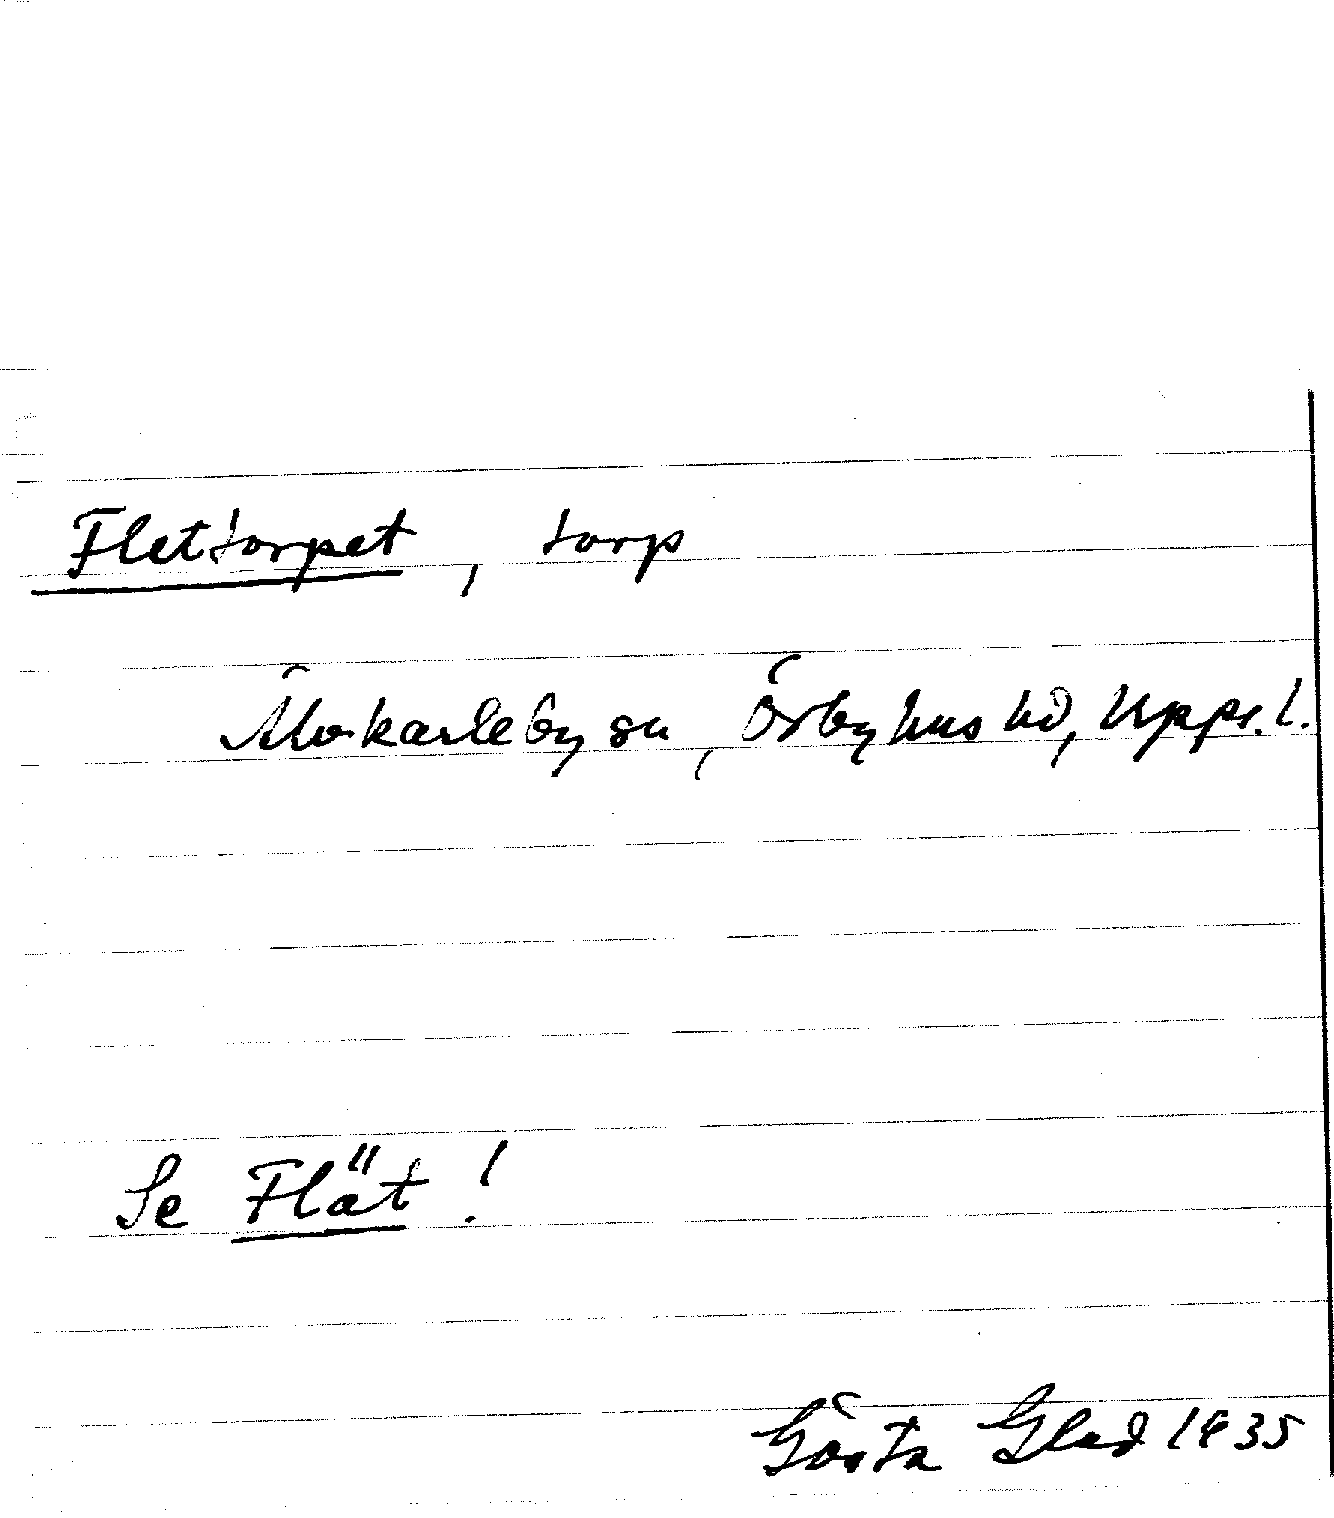 Flettorpet, torp
Älvkarleby sn, Örbyhus hd, Upps. l.
Se Flät!
Gösta Glad 1935